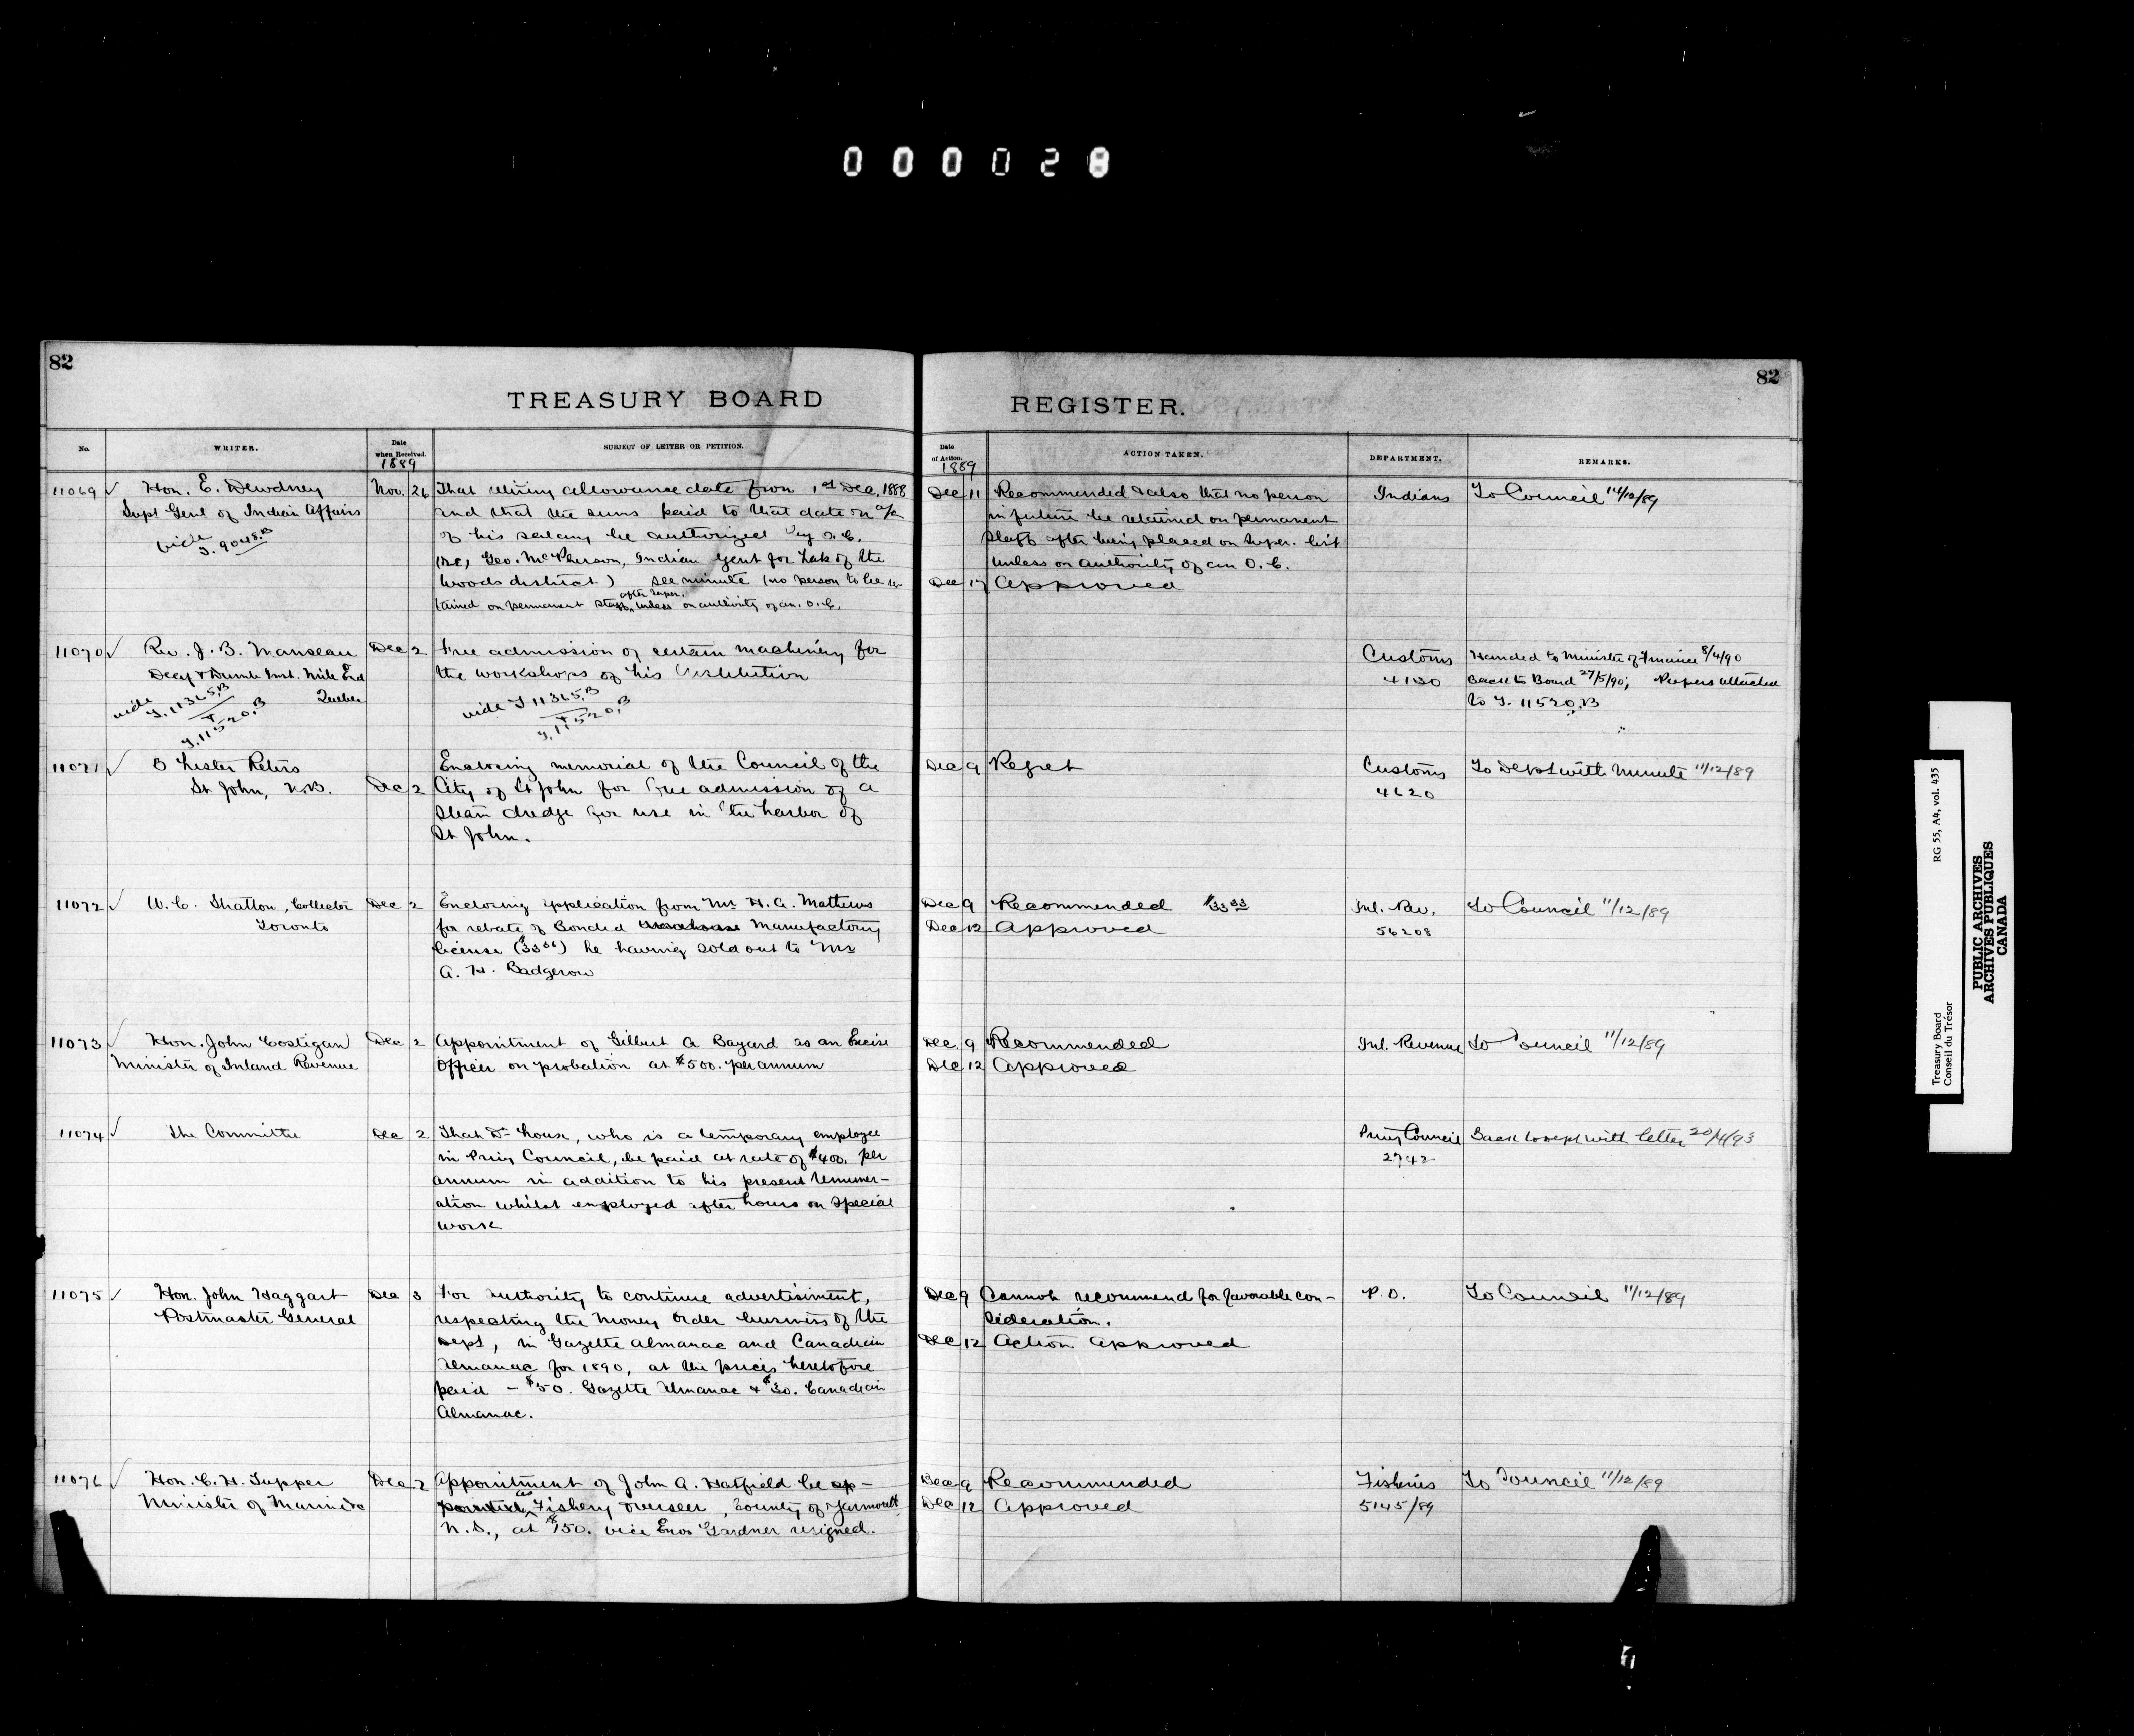 000028
82
82
TREASURY BOARD
REGISTER.
No.
WRITER.
Date when Received.
1889
SUBJECT OF LETTER OR PETITION.
Date of Action.
1889
ACTION TAKEN.
DEPARTMENT.
REMARKS.
11069 ✓ Hon. E. Dewdney
Supt Genl of Indian Affairs
vide T. 9048.B
Nov. 26
That retiring allowance date from 1st Dec. 1888
and that the sums paid to that date on a/c
of his salary be authorized by O.C.
(re, Geo. McPherson, Indian Agent for Lake of the
Woods district) see minute (no person to be re-
tained on permanent staff after super. unless on authority of an. O.C.
Dec 11 Recommended & also that no person
in future be retained on permanent
staff after being placed on super. list
unless on authority of an O.C.
Dec 17 Approved
Indians
To Council 14/12/89
11070 ✓ Rev. J. B. Manseau
Deaf & Dumb Inst. Mile End
Quebec
vide T. 11365.B
+
T. 11520.B
Dec 2
Free admission of certain machinery for
the workshops of his Institution
vide T 11365.B
+
T. 11520.B
Customs
4130
Handed to Minister of Finance 8/4/90
Back to Board 27/5/90; Papers attached
to T. 11520.B
11071 ✓ B Lester Peters
St John, N.B.
Dec 2
Enclosing memorial of the Council of the
City of St John for free admission of a
steam dredge for use in the harbor of
St John.
Dec 9 Regret
Customs
4620
To Dept with minute 11/12/89
11072 ✓ W. C. Stratton, Collector
Toronto
Dec 2
Enclosing application from Mr H. A. Mathews
for rebate of Bonded warehouse Manufactory
license ($33 33) he having sold out to Mr
A. H. Badgerow
Dec 9 Recommended $33 33
Dec 12 Approved
Inl. Rev.
56208
To Council 11/12/89
11073 ✓ Hon. John Costigan
Minister of Inland Revenue
Dec 2
Appointment of Gilbert A Bayard as an Excise
Officer on probation at $500. per annum
Dec. 9 Recommended
Dec 12 Approved
Inl. Revenue
To Council 11/12/89
11074 ✓ The Committee
Dec 2
That Dr House, who is a temporary employee
in Privy Council, be paid at rate of $400. per
annum in addition to his present remuner-
ation whilst employed after hours on special
work
Privy Council
2742
Back to Dept with letter 20/4/93
11075 ✓ Hon. John Haggart
Postmaster General
Dec 3
For authority to continue advertisement,
respecting the money order business of the
Dept, in Gazette Almanac and Canadian
Almanac for 1890, at the prices heretofore
paid – $50. Gazette Almanac & $30. Canadian
Almanac.
Dec 9 Cannot recommend for favorable con-
sideration.
Dec 12 Action Approved
P.O.
To Council 11/12/89
11076 ✓ Hon. C. H. Tupper
Minister of Marine &c
Dec 2
Appointment of John A. Hatfield be ap-
pointed as Fishery overseer, County of Yarmouth
N.S., at $150. vice Enos Gardner resigned.
Dec 9 Recommended
Dec 12 Approved
Fisheries
5145/89
To Council 11/12/89
Treasury Board
Conseil du Trésor
RG 55, A4, vol. 435
PUBLIC ARCHIVES
ARCHIVES PUBLIQUES
CANADA